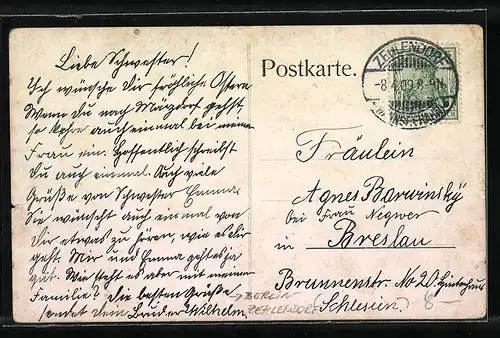 Liebe Schwester!
Ich wünsche Dir fröhliche Ostern
Wenn Du nach Märzdorf gehst,
so kehre auch einmal bei meiner
Frau ein. Hoffentlich schreibst
Du auch einmal. Auch viele
Grüße von Schwester Emma
Sie wünscht auch einmal von
Dir etwas zu hören, wie es dir
geht. Mir und Emma geht es ja
gut. Wie steht es aber mit meiner
Familie? Die besten Grüße
sendet dem Bruder Wilhelm.
Postkarte.
ZEHLENDORF
-8.4.09. 8-9N.
(WANNSEEBAHN)
Fräulein
Agnes Barwinsky
bei Frau Negwer
in Breslau
Brunnenstr. No 20. Hinterhaus
(Schlesien.)
→ BERLIN
ZEHLENDORF
8 —